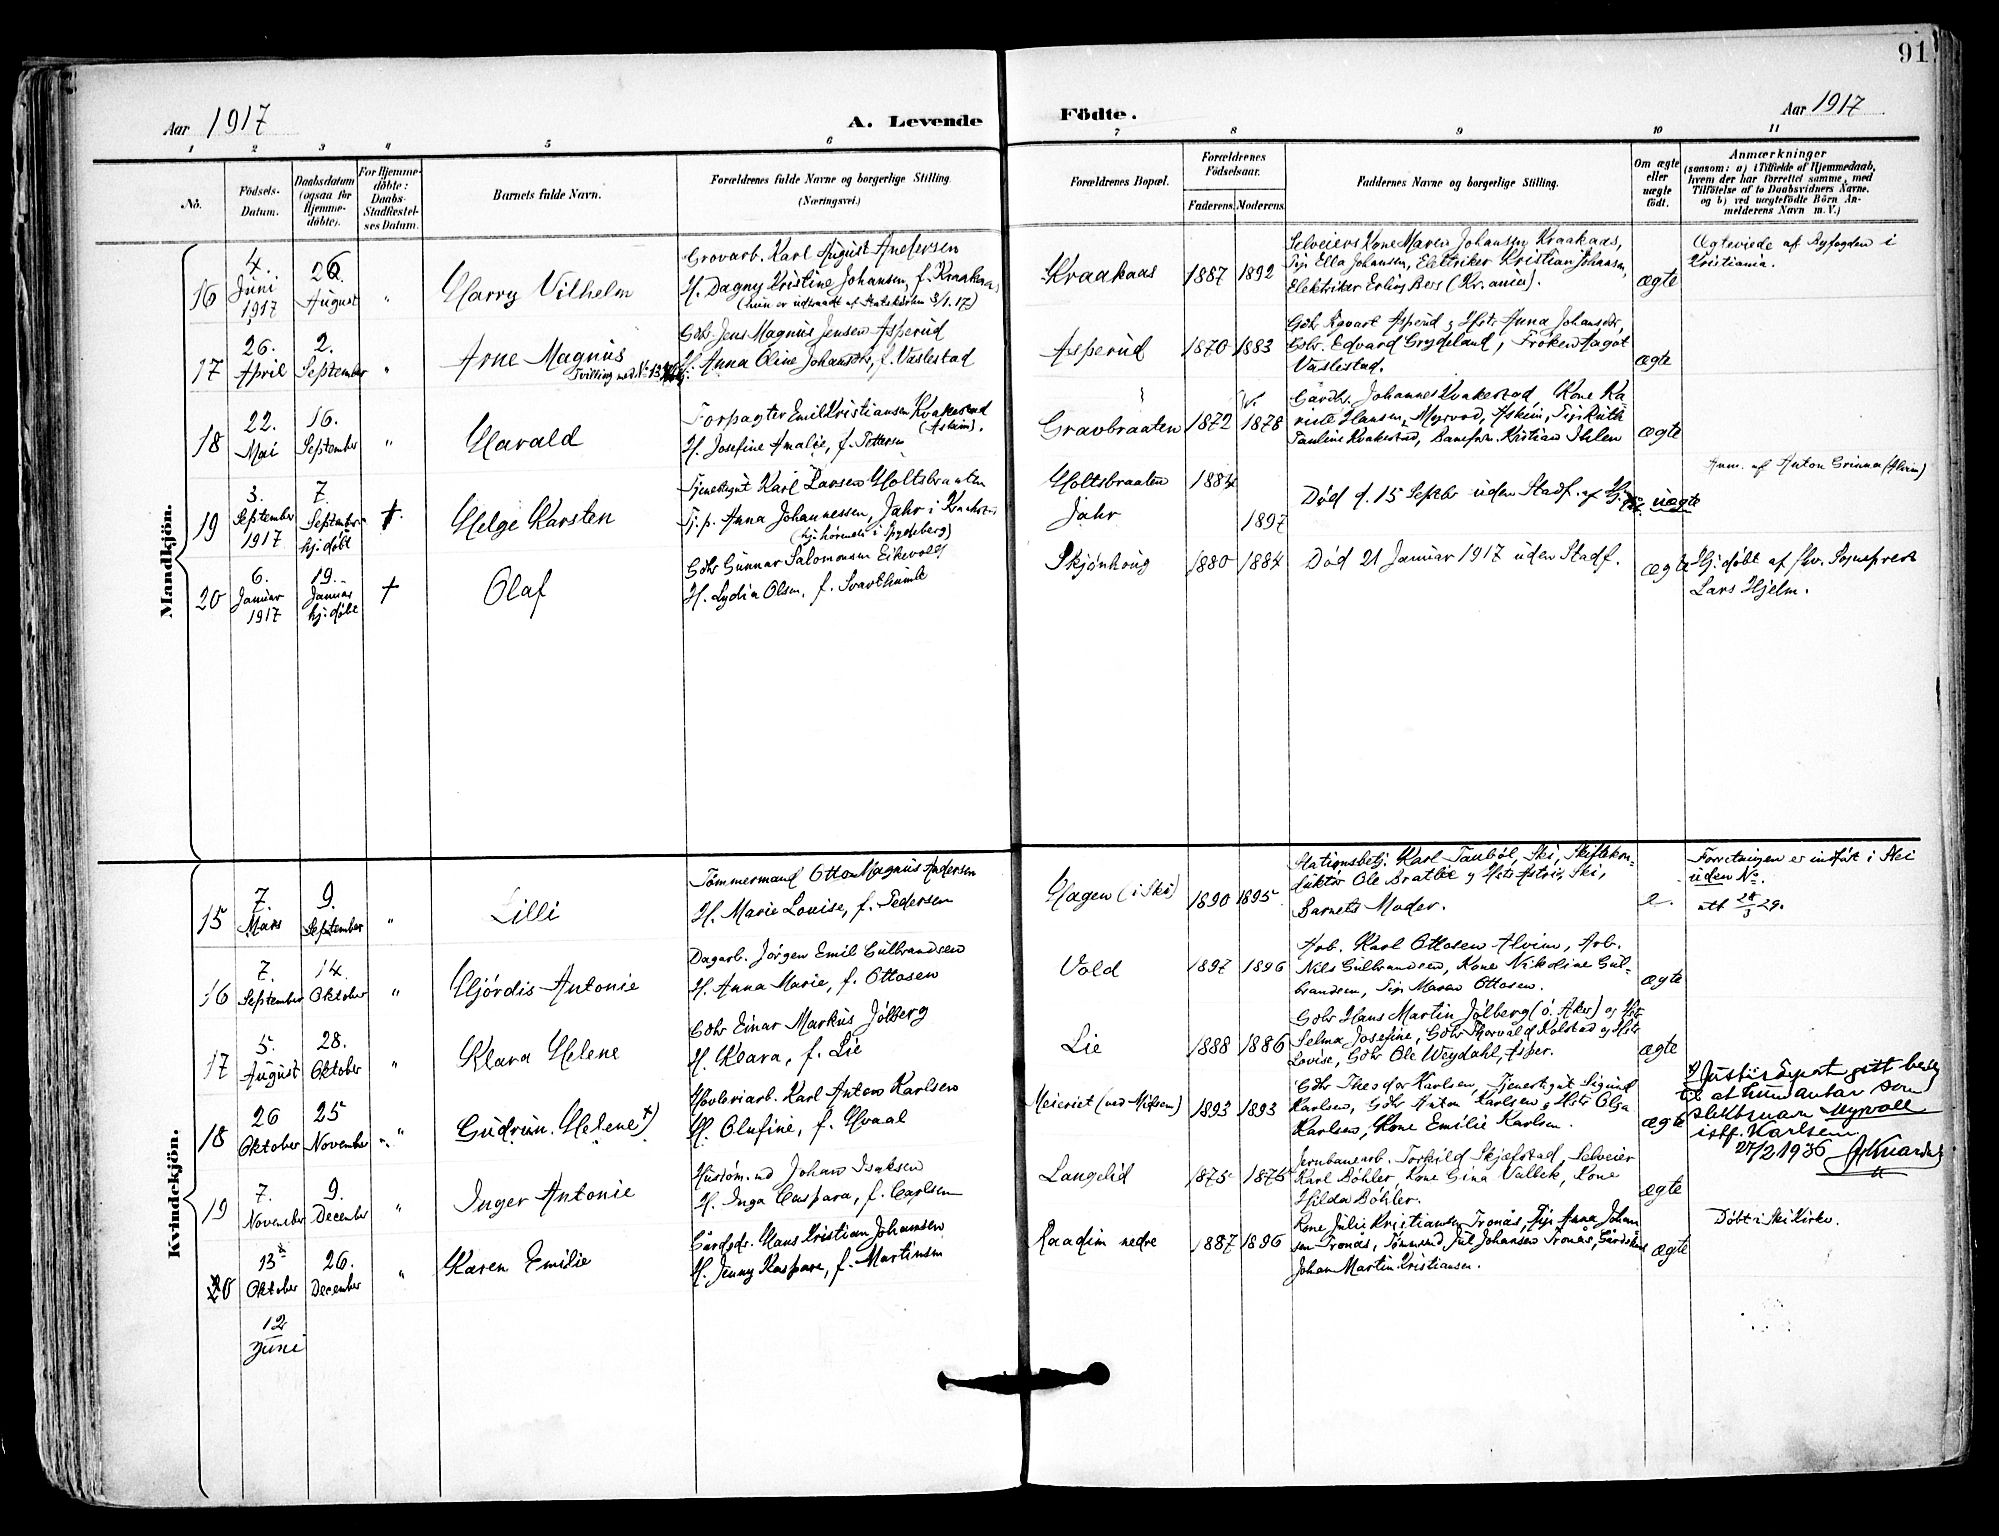 91
Aar 1917
A. Levende Födte.
Aar 1917
1 2 3 4 5 6 7 8 9 10 11
No.
Födsels-
Datum.
Daabsdatum
(ogsaa for
Hjemme-
döbte).
For Hjemme-
döbte:
Daabs-
Stadfæstel-
ses Datum.
Barnets fulde Navn.
Forældrenes fulde Navne og borgerlige Stilling.
(Næringsvei.)
Forældrenes Bopæl.
Forældrenes
Födselsaar.
Faderens. Moderens.
Faddernes Navne og borgerlige Stilling.
Om ægte
eller
uægte
født.
Anmærkninger
(saasom: a) i Tilfælde af Hjemmedaab,
hvem der har forrettet samme, med
Tilföielse af to Daabsvidners Navne.
og b) ved uægtefödte Börn An-
melderens Navn m. V.)
Mandkjön.
16
4.
Juni
1917
26
August
"
Harry Vilhelm
Grovarb. Karl August Andersen
H. Dagny Kristine Johansen, f. Kraakaas
(hun er udmeldt af Statskirken 3/1.17)
Kraakaas
1887 1892
Selveiers Kone Maren Johansen Kraakaas,
Pige Ella Johansen, Elektriker Kristian Johansen,
Elektriker Erling Berg (Kr.ania).
ægte
Ægteviede af Byfogden i
Kristiania.
17
26.
April
2.
September
"
Arne Magnus
Tvilling med No 13
Gbr. Jens Magnus Jensen Asperud
H. Anna Oline Johansdtr, f. Vaslestad
Asperud
1870 1883
Gbr Asperud og Hstr Anna Johansdtr,
Gbr. Edvard Grydeland, Frøken Aagot
Vaslestad.
ægte
18
22.
Mai
16.
September
"
Harald
Forpagter Emil Kristiansen Kvakestad
(Askim).
H. Josefine Amalie, f. Pettersen
Gravbraaten
1872 1878
Gårdbr. Johannes Kvakestad, Kone Ka
rine Hansen, Myrvod, Askim, Pige Ruth
Pauline Kvakestad, Kristian Ihlen
ægte
19
3.
September
1917
7.
September
hj. døbt
†
Helge Karsten
Tjenestegut Karl Larsen Holtsbraaten
Tj.p. Anna Johannessen, Jahr i Kraakstad
(hj.hørende i Spydeberg)
Holtsbraaten
Jahr
1884
1897
Død d. 15 Septbr uden Stadf. af Hj.
uægte
Anm. af Anton Grinna (Alvim)
20
6.
Januar
1917
19.
Januar
hj. døbt
†
Olaf
Gbr Gunnar Salomonsen Eikevold
H. Lydia Olsen, f. Svarthumle
Skjønhoug
1880 1884
Død 21 Januar 1917 uden Stadf.
ægte
Hj. døbt af Sogneprest
Lars Hjelm.
Kvindekjön.
15
7.
Mars
9.
September
"
Lilli
Tømmermand Otto Magnus Andersen
H. Marie Lovise, f. Pedersen
Hagen (i Ski)
1890 1895
Stationsbetj. Karl Taubøl, Ski, Skiftekon-
duktør Ole Bratlie og Hstr Astrid, Ski,
Barnets Moder.
e.
Forretningen er indført i Ski
uden No.
att 28/3 29.
16
7.
September
14.
Oktober
"
Hjørdis Antonie
Dagarb. Jørgen Emil Gulbrandsen
H. Anna Marie, f. Ottosen
Vold
1897 1896
Arb. Karl Ottosen Alvim, Arb.
Nils Gulbrandsen, Kone Nikoline Gul-
brandsen, Pige Maren Ottosen.
ægte
17
5.
August
28.
Oktober
"
Klara Helene
Gbr Einar Markus Jølberg
H. Klara, f. Lie
Lie
1888 1886
Gbr Hans Martin Jølberg (ø. Aker) og Hstr
Selma Josefine, Gbr Thorvald Kolstad og Hstr
Lovise, Gbr Ole Weydahl, Asper.
ægte
18
26
Oktober
25
November
"
Gudrun Helene x)
Høvleriarb. Karl Anton Karlsen
H. Olufine, f. Hvaal
Meieriet (ved Nilsen)
1893 1893
Gbr Theodor Karlsen, Tjenestgut Sigurd
Karlsen, Gbr Anton Karlsen og Hstr Olga
Karlsen, Kone Emilie Karlsen.
ægte
x) Justisdepart gitt bevilg
til at hun antar som
slektsnavn Myrvoll
istf. Karlsen
27/2 1936
19
7.
November
9.
December
"
Inger Antonie
Husmand Johan Isaksen
H. Inga Caspara, f. Carlsen
Langelid
1875 1875
Jernbanearb. Torkild Skjæfstad, Selveier
Karl Bøhler, Kone Gina Vallek, Kone
Hilda Bøhler.
ægte
20
13
Oktober
26.
December
"
Karen Emilie
Gårdgdr. Hans Kristian Johansen
H. Jenny Kaspara, f. Martinsen
Raadim nedre
1887 1896
Kone Julie Kristiansen Tronås, Pige Anna Johan
sen Tronås, Tømmermd Jul Johansen Tronås,
Johan Martin Kristiansen.
ægte
Døbt i Ski Kirke.
12
Juni